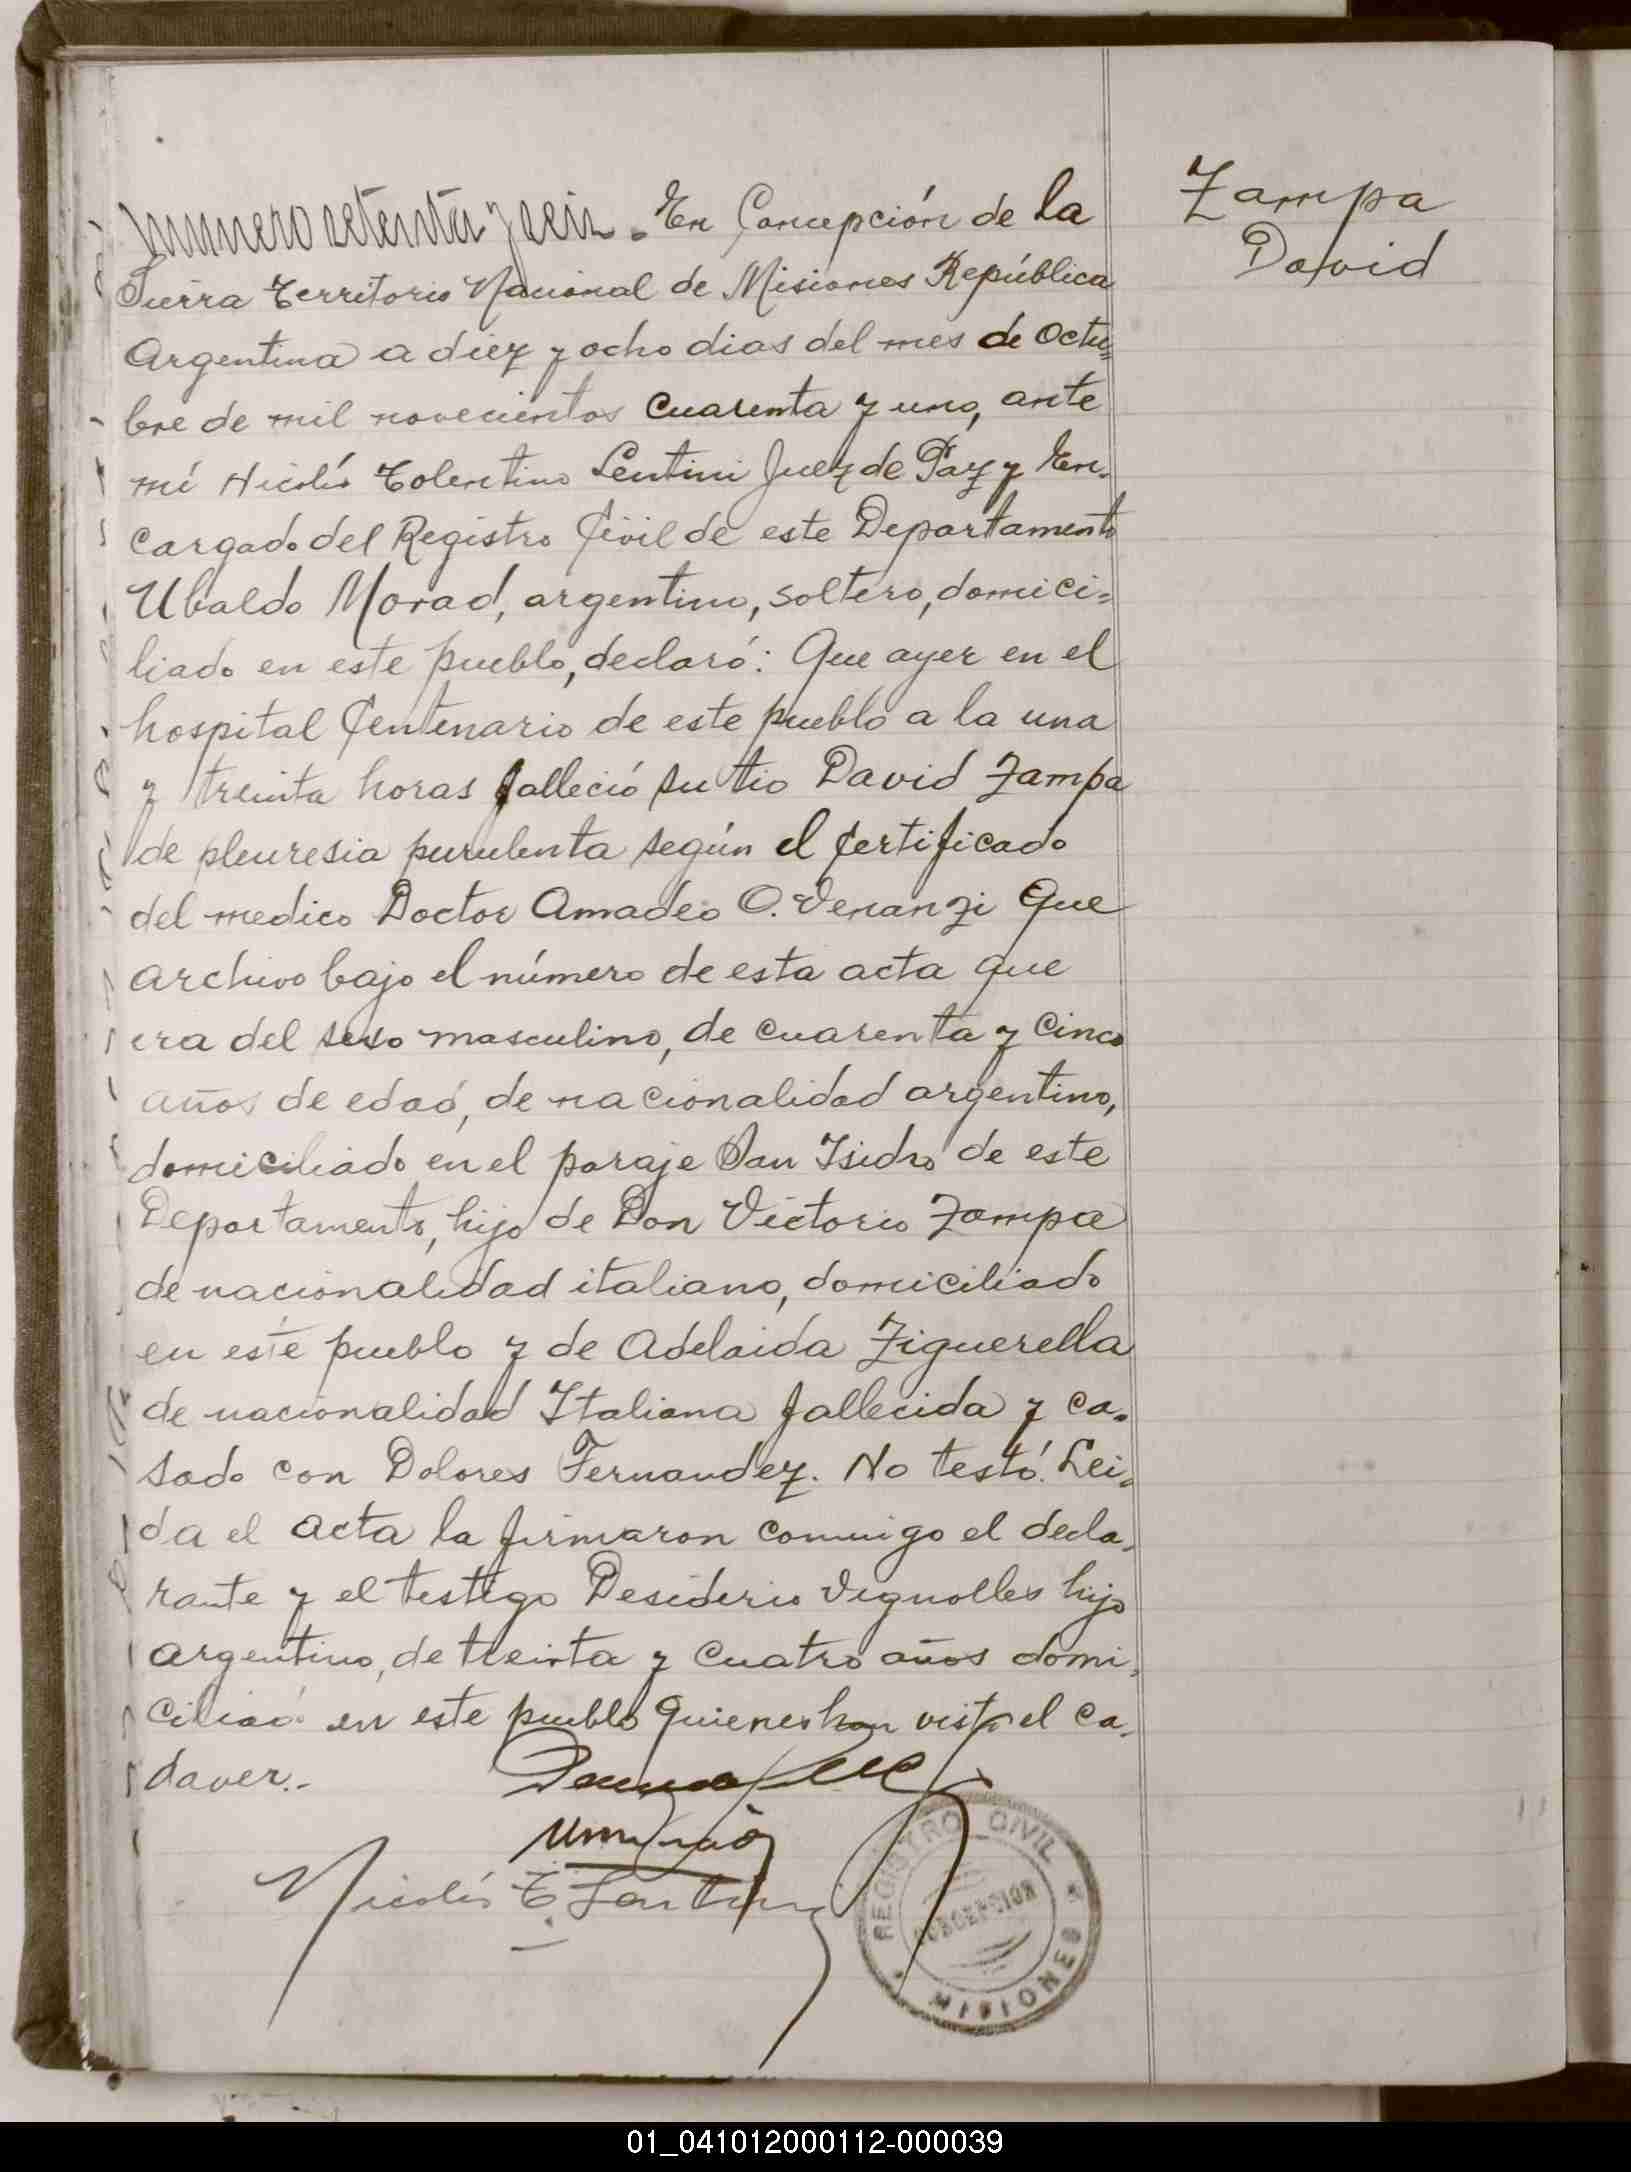 Numero setenta y seis. En Concepción de la
Sierra Territorio Nacional de Misiones República
Argentina a diez y ocho dias del mes de Octu=
bre de mil novecientos cuarenta y uno, ante
mí Nicolás Tolentino Lentini Juez de Paz y En-
cargado del Registro Civil de este Departamento
Ubaldo Morad, argentino, soltero, domici=
liado en este pueblo, declaró: Que ayer en el
hospital Centenario de este pueblo a la una
y treinta horas falleció su tio David Zampa
de pleuresia purulenta según el Certificado
del medico Doctor Amadeo O. Venanzi Que
archivo bajo el número de esta acta que
era del sexo masculino, de cuarenta y cinco
años de edad, de nacionalidad argentino,
domiciliado en el paraje San Isidro de este
Departamento, hijo de Don Victorio Zampa
de nacionalidad italiano, domiciliado
en este pueblo y de Adelaida Ziguerella
de nacionalidad Italiana fallecida y ca-
sado con Dolores Fernandez. No testó. Lei-
da el acta la firmaron conmigo el decla-
rante y el testigo Desiderio Vignolles hijo
argentino, de treinta y cuatro años domi-
ciliado en este pueblo quienes han visto el ca-
daver.-
Nicolás T Lentini
REGISTRO CIVIL
CONCEPCION
MISIONES
Zampa
David
01_041012000112-000039